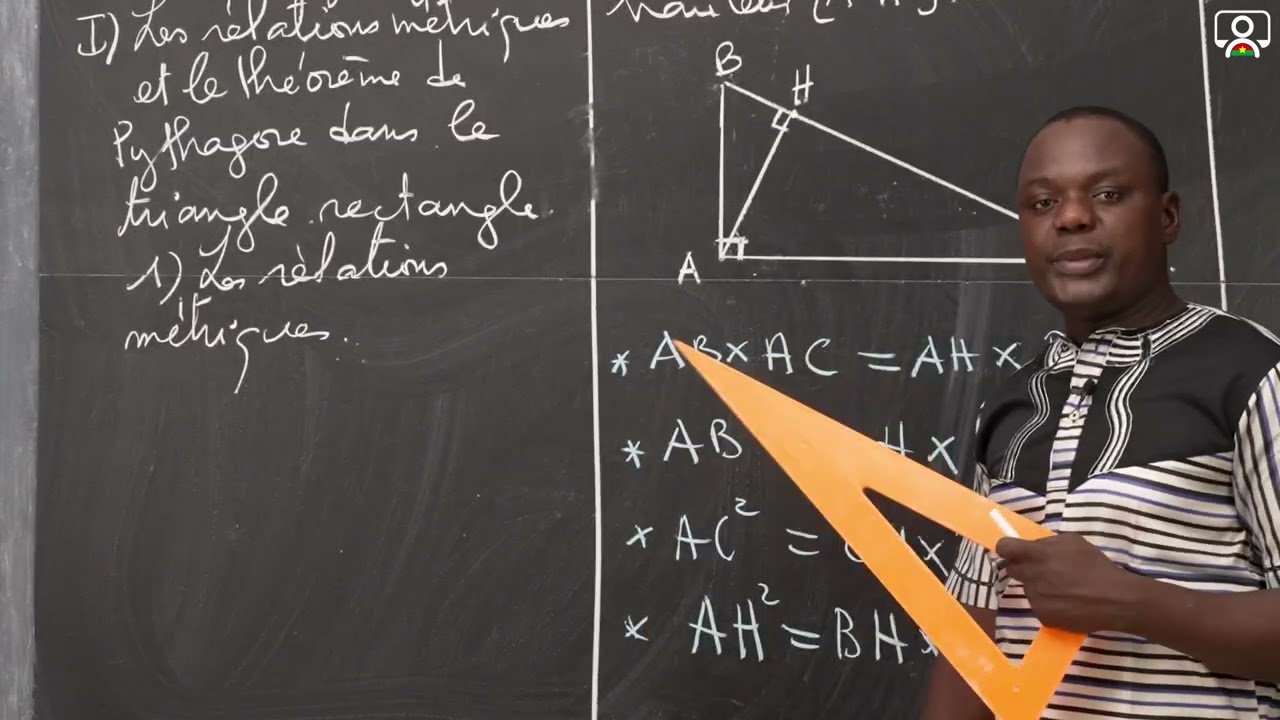 I) Les rélations métriques
et le théorème de
Pythagore dans le
triangle rectangle.
1) Les rèlations
métriques.
hauteur [AH].
B
H
A
* AB × AC = AH ×
* AB H ×
* AC² = ×
* AH² = BH ×